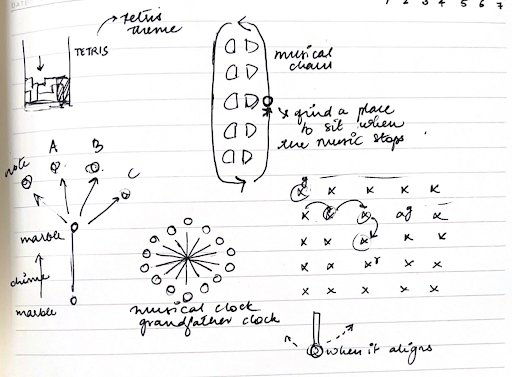 1 2 3 4 5 6 7
tetris
theme
TETRIS
musical
chairs
find a place
to sit when
the music stops.
note
A
B
C
marble
chime
marble
musical clock
grandfather clock
x x x x
x x x x
x x x x x
x x x x
x x x x x
when it aligns